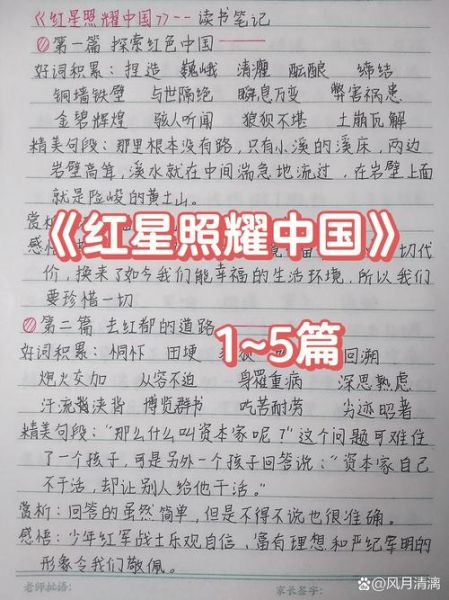 《红星照耀中国》--读书笔记
第一篇 探索红色中国
好词积累：捏造 巍峨 清癯 酝酿 缔结
铜墙铁壁 与世隔绝 瞬息万变 弊害祸患
金碧辉煌 骇人听闻 狼狈不堪 土崩瓦解
精美句段：那里根本没有路，只有小溪的溪床，两边
岩壁高耸，溪水就在中间湍急地流过，在岩壁上面
就是险峻的黄土山。
赏析：
《红星照耀中国》
感悟： 切代
价，换来了如今我们能幸福的生活环境，所以我们
要珍惜一切
第二篇 去红都的道路
1~5篇
好词积累：恫怀 田埂 回溯
炮火交加 从容不迫 身罹重病 深思熟虑
汗流浃背 博览群书 吃苦耐劳 劣迹昭著
精美句段：“那么什么叫资本家呢？”这个问题可难住
了一个孩子，可是另外一个孩子回答说：“资本家自己
不干活，却让别人给他干活。”
赏析：回答的虽然简单，但是不得不说也很准确。
感悟：少年红军战士乐观自信，富有理想和严纪军明的
形象令我们敬佩。
老师批语： 家长签字：
风月清漓